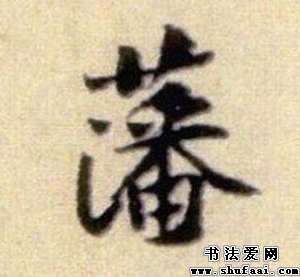 藩
书法爱网
www.shufaai.com